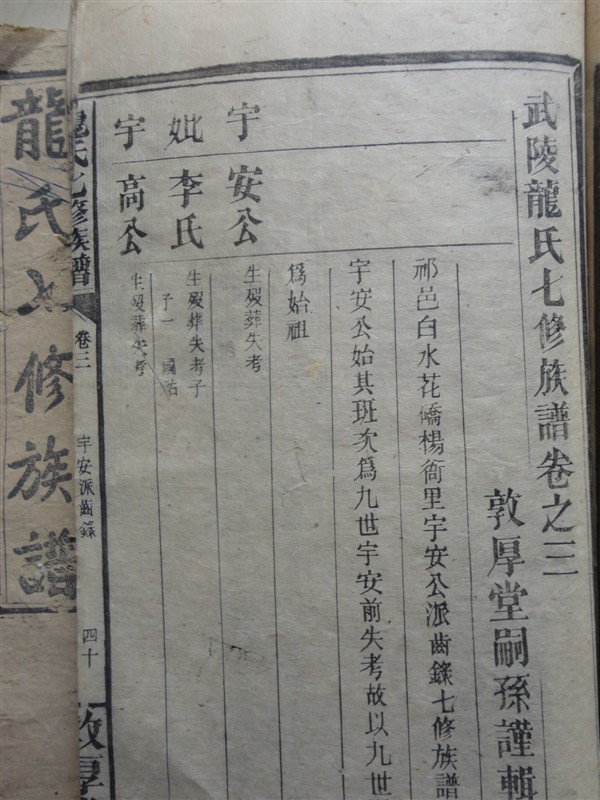 武陵龍氏七修族譜卷之三
敦厚堂嗣孫謹輯
祁邑白水花橋楊衙里宇安公派齒錄七修族譜
宇安公始其班次爲九世宇安前失考故以九世
爲始祖
宇安公
生歿葬失考
妣李氏
生歿葬失考子
子一 國
宇高公
生歿葬失考
龍氏七修族譜
卷三
宇安派齒錄
四十
敦厚
龍氏七修族譜